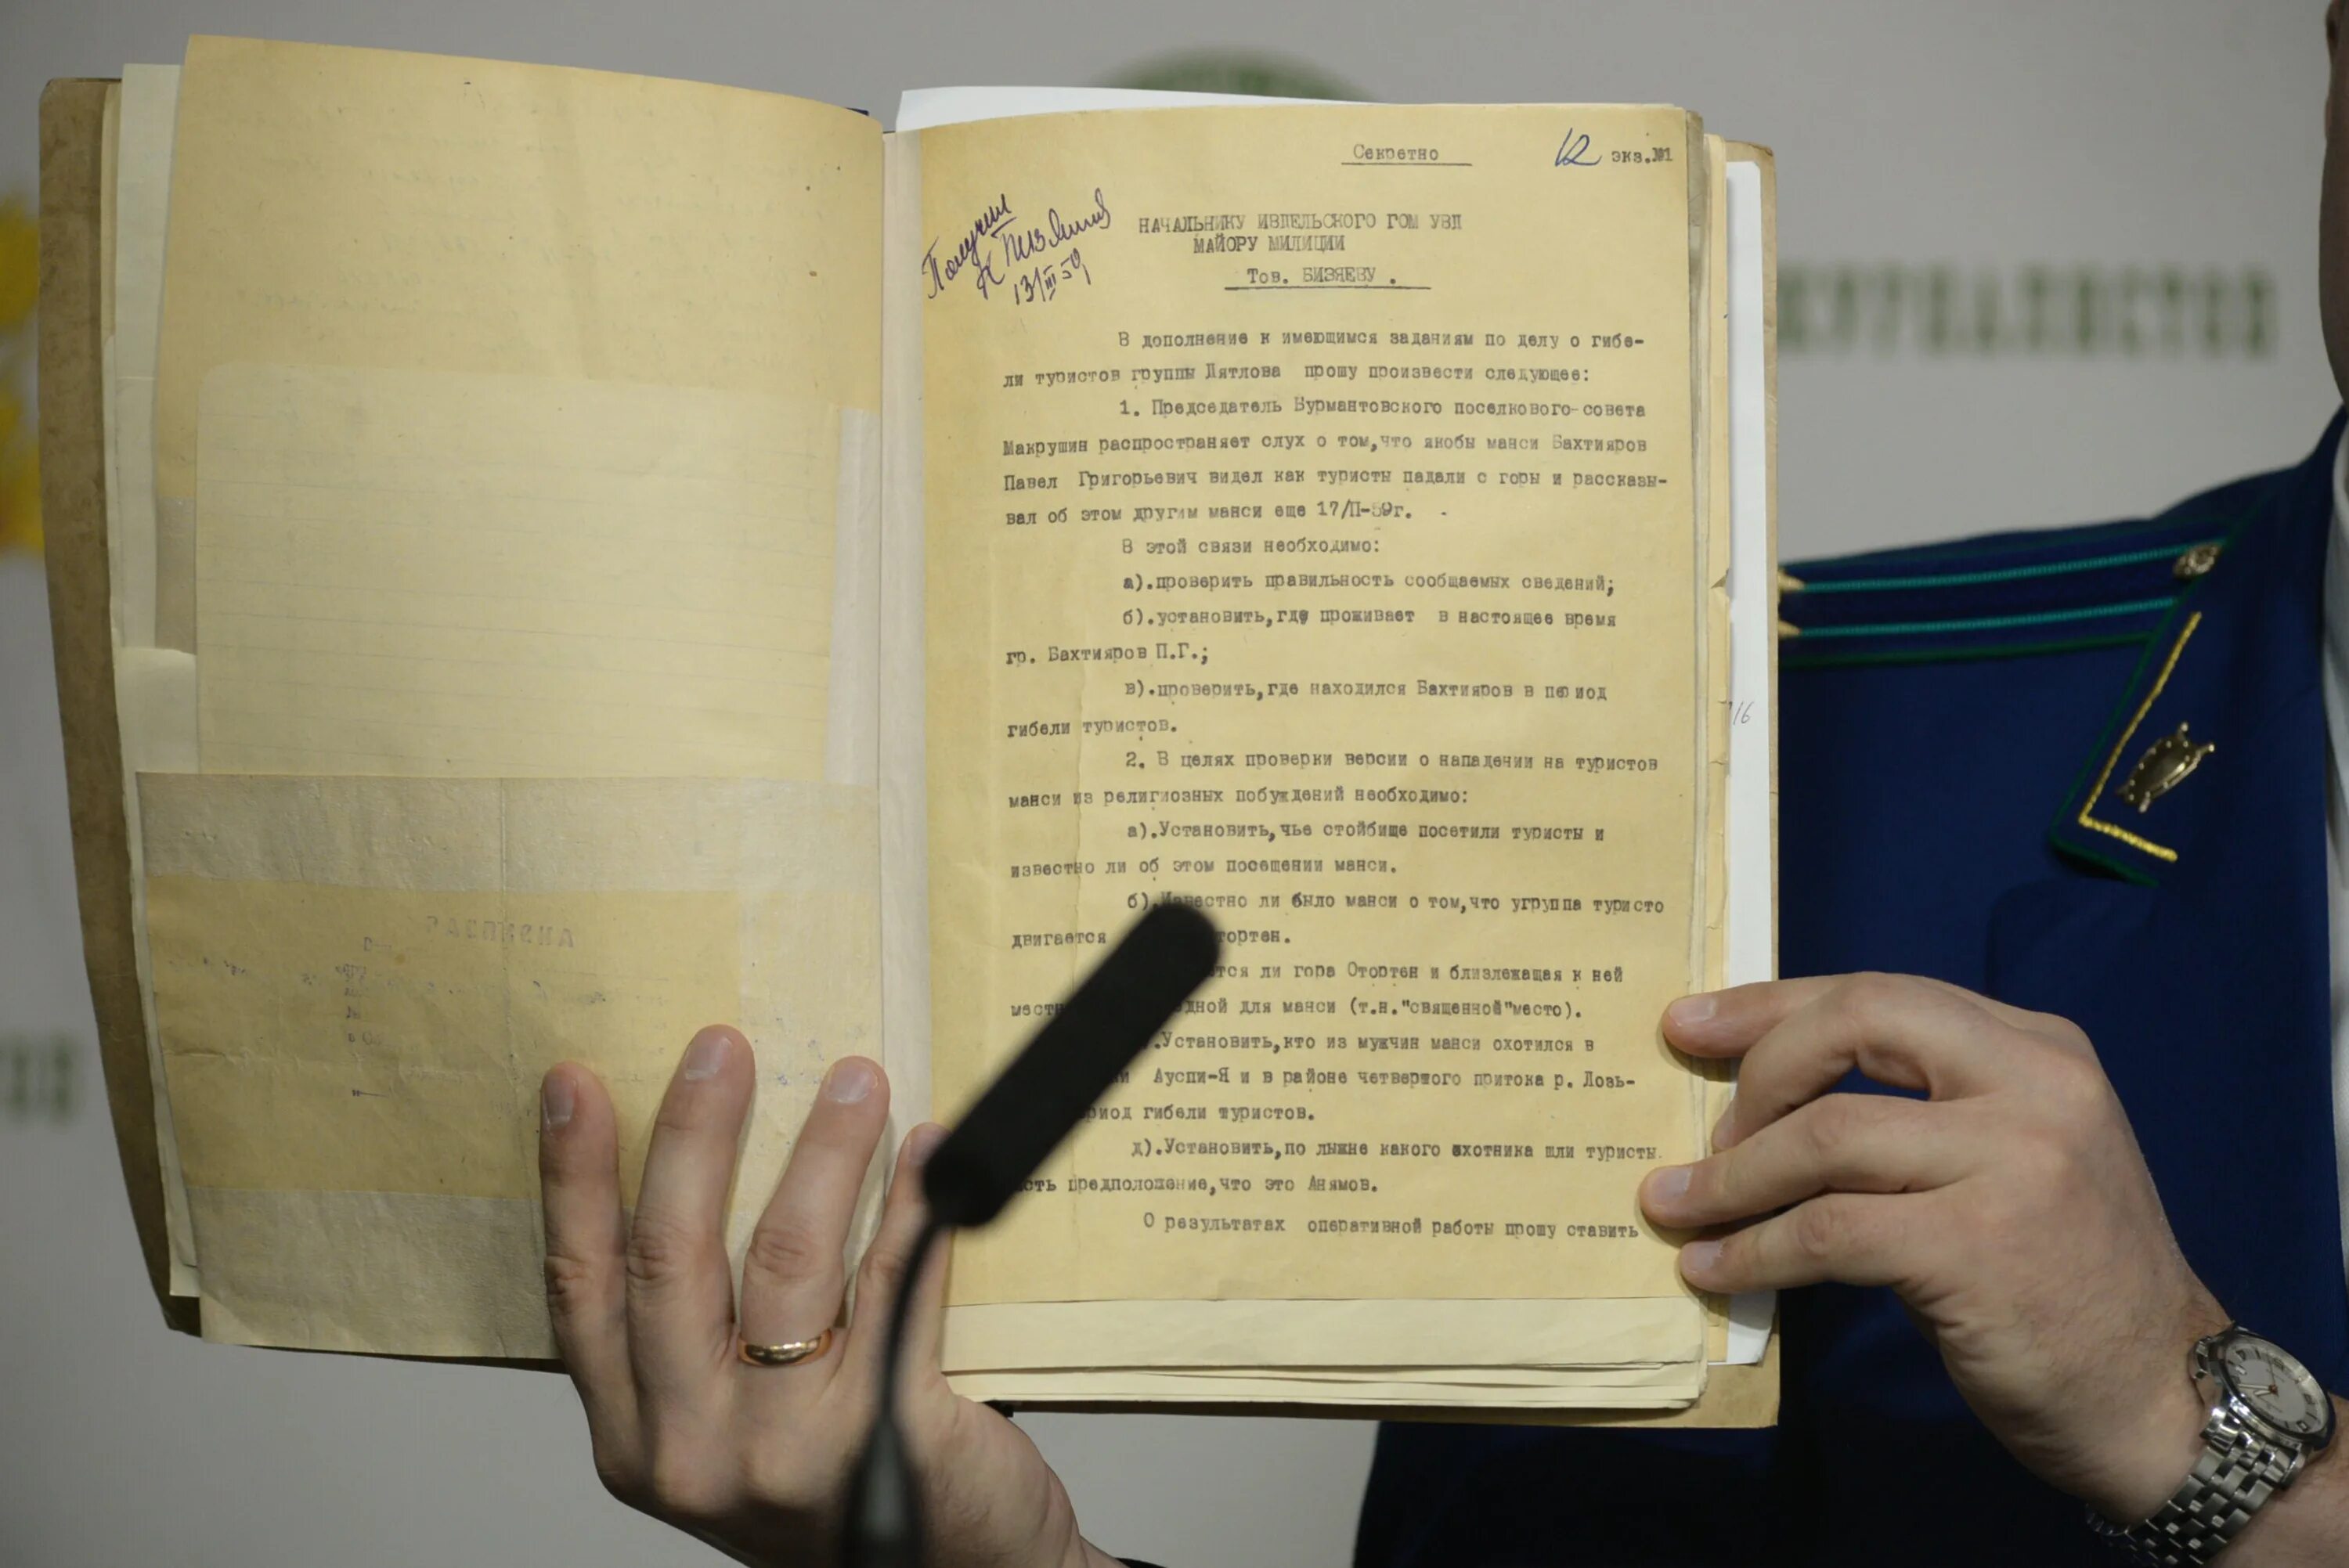 Секретно
12 экз.№1
Получил
13/III-59
НАЧАЛЬНИКУ ИВДЕЛЬСКОГО ГОМ УВД
МАЙОРУ МИЛИЦИИ
Тов. БИЗЯЕВУ .
В дополнение к имеющимся заданиям по делу о гибе-
ли туристов группы Дятлова прошу произвести следующее:
1. Председатель Бурмантовского поселкового-совета
Макрушин распространяет слух о том,что якобы манси Бахтияров
Павел Григорьевич видел как туристы падали с горы и рассказы-
вал об этом другим манси еще 17/П-59г.
В этой связи необходимо:
а).проверить правильность сообщаемых сведений;
б).установить,где проживает в настоящее время
гр. Бахтияров П.Г.;
в).проверить,где находился Бахтияров в период
гибели туристов.
2. В целях проверки версии о нападении на туристов
манси из религиозных побуждений необходимо:
а).Установить,чье стойбище посетили туристы и
известно ли об этом посещении манси.
б).Известно ли было манси о том,что угруппа туристо
двигается тортен.
ется ли гора Отортен и близлежащая к ней
местн одной для манси (т.н."священной"место).
.Установить,кто из мужчин манси охотился в
и Ауспи-Я и в районе четвертого притока р. Лозь-
риод гибели туристов.
д).Установить,по лыжне какого охотника шли туристы.
сть предположение,что это Анямов.
О результатах оперативной работы прошу ставить
16